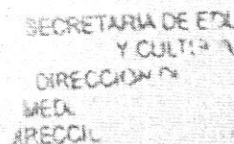 SECRETARIA DE EDU
Y CULTURA
DIRECCION DE
MEDI
DIRECCI